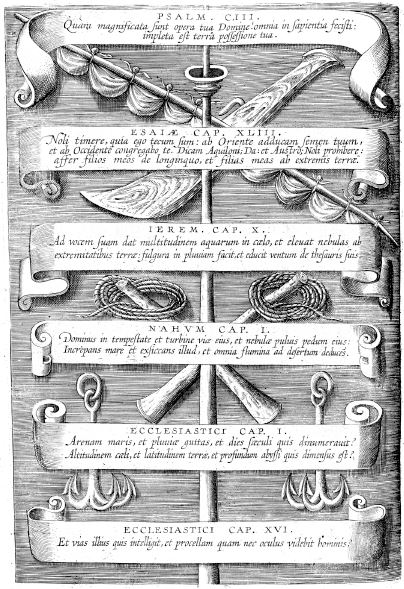 PSALM. CIII.
Quam magnificata sunt opera tua Domine! omnia in sapientia fecisti:
impleta est terra possessione tua.
ESAIÆ CAP. XLIII.
Noli timere, quia ego tecum sum: ab Oriente adducam semen tuum,
et ab Occidente congregabo te. Dicam Aquiloni; Da: et Austro; Noli prohibere:
affer filios meos de longinquo, et filias meas ab extremis terræ.
IEREM. CAP. X.
Ad vocem suam dat multitudinem aquarum in cælo, et elevat nebulas ab
extremitatibus terræ: fulgura in pluviam facit, et educit ventum de thesauris suis.
NAHVM CAP. I.
Dominus in tempestate et turbine viæ eius, et nebulæ pulvis pedum eius:
Increpans mare et exsiccans illud, et omnia flumina ad desertum deducēs.
ECCLESIASTICI CAP. I.
Arenam maris, et pluviæ guttas, et dies sæculi quis dinumeravit?
Altitudinem cæli, et latitudinem terræ, et profundum abyssi quis dimensus est?
ECCLESIASTICI CAP. XVI.
Et vias illius quis intelligit, et procellam quam nec oculus videbit hominis?